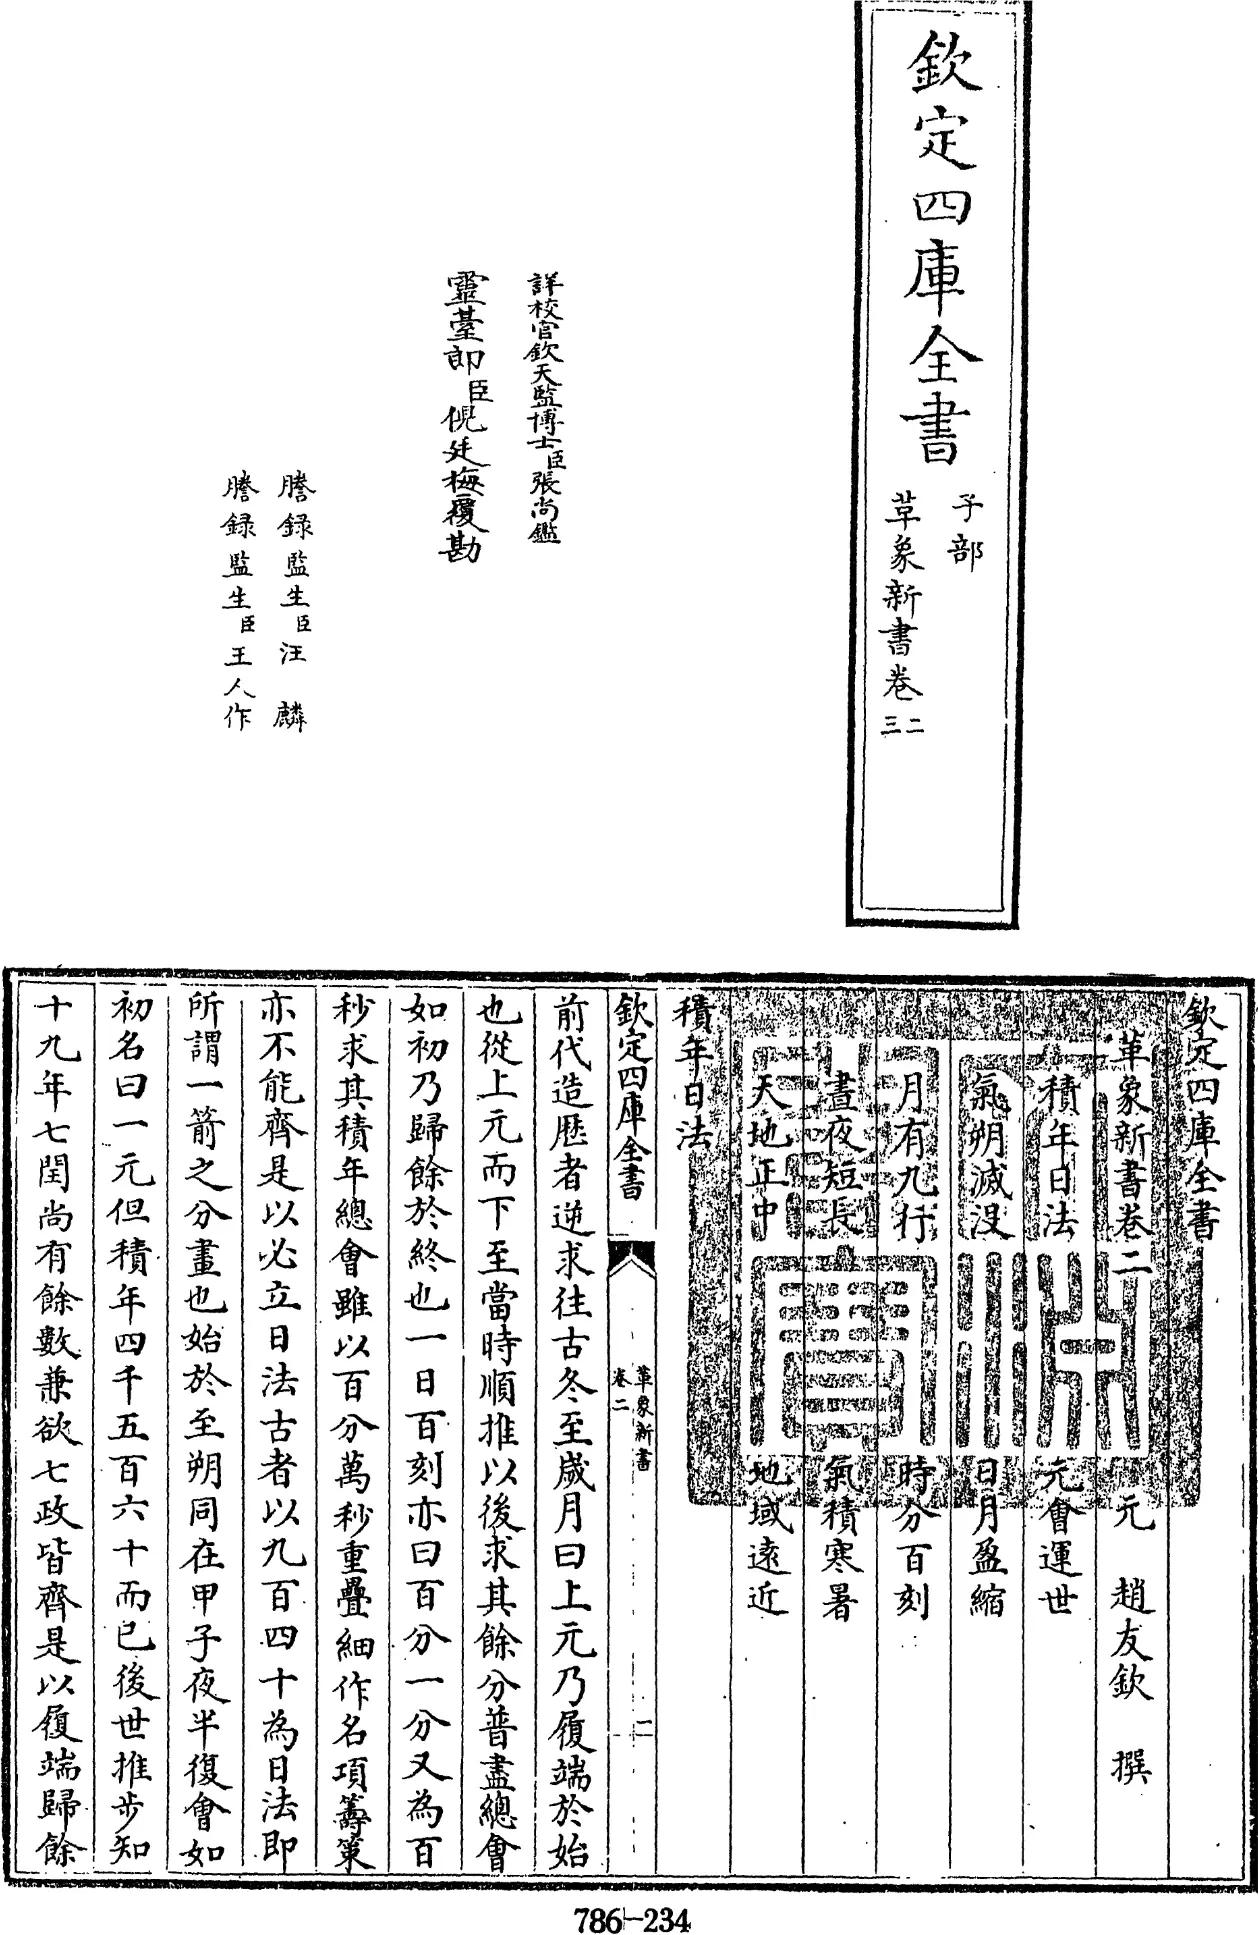 欽定四庫全書
子部
革象新書卷二三
詳校官欽天監博士臣張尚鑑
靈臺郎臣倪廷梅覆勘
謄録監生臣汪麟
謄録監生臣王人作
欽定四庫全書
革象新書卷二 元 趙友欽 撰
積年日法 元會運世
氣朔滅没 日月盈縮
月有九行 時分百刻
晝夜短長 氣積寒暑
天地正中 地域遠近
積年日法
欽定四庫全書 革象新書 卷二 二
前代造歴者逆求往古冬至歲月曰上元乃履端於始
也從上元而下至當時順推以後求其餘分普盡總會
如初乃歸餘於終也一日百刻亦曰百分一分又為百
秒求其積年總會雖以百分萬秒重疊細作名項籌策
亦不能齊是以必立日法古者以九百四十為日法即
所謂一箭之分畫也始於至朔同在甲子夜半復會如
初名曰一元但積年四千五百六十而已後世推步知
十九年七閏尚有餘數兼欲七政皆齊是以履端歸餘
786-234